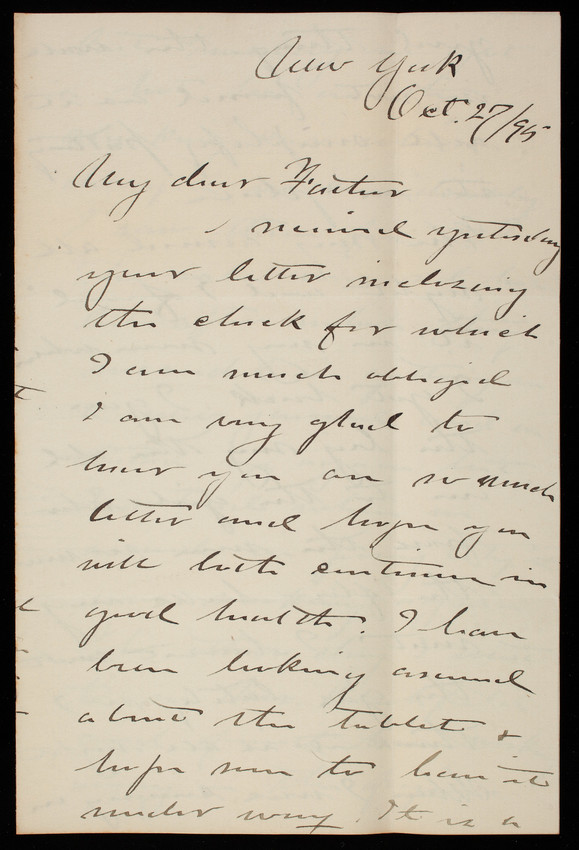 New York
Oct. 27/95
My dear Father
I received yesterday
your letter inclosing
the check for which
I am much obliged
I am very glad to
hear you are so much
better and hope you
will both continue in
good health. I have
been looking around
about the tablet &
hope soon to have it
under way. It is a